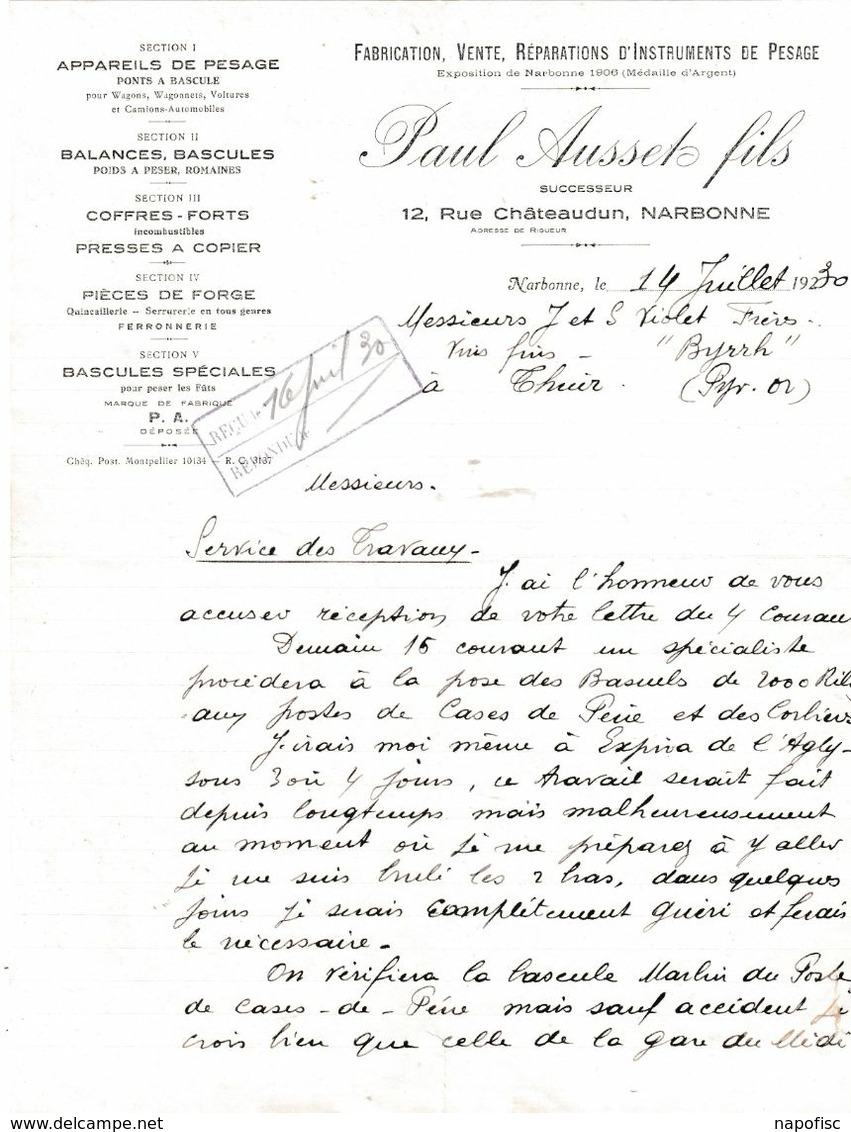 SECTION I
APPAREILS DE PESAGE
PONTS A BASCULE
pour Wagons, Wagonnets, Voitures
et Camions-Automobiles
SECTION II
BALANCES, BASCULES
POIDS A PESER, ROMAINES
SECTION III
COFFRES-FORTS
incombustibles
PRESSES A COPIER
SECTION IV
PIÈCES DE FORGE
Quincaillerie - Serrurerie en tous genres
FERRONNERIE
SECTION V
BASCULES SPÉCIALES
pour peser les Fûts
MARQUE DE FABRIQUE
P. A.
DÉPOSÉE
Chèq. Post. Montpellier 10134 - R. C. 3137
FABRICATION, VENTE, RÉPARATIONS D'INSTRUMENTS DE PESAGE
Exposition de Narbonne 1906 (Médaille d'Argent)
Paul Ausset fils
SUCCESSEUR
12, Rue Châteaudun, NARBONNE
ADRESSE DE RIGUEUR
Narbonne, le 14 Juillet 1930
Messieurs J et S Violet Frères.
Vins fins - "Byrrh"
à Thuir. (Pyr. Or)
REÇU LE 16 Juil 30
RÉPONDU LE
Messieurs.
Service des Travaux-
J'ai l'honneur de vous
accuser réception de votre lettre du 4 couran
Demain 15 courant un spécialiste
procédera à la pose des Bascules de 2000 Kil
aux postes de Cases de Pène et des Corbières
J'irais moi même à Espira de l'Agly-
sous 3 où 4 jours, ce travail serait fait
depuis longtemps mais malheureusement
au moment où je me préparez à y aller
je me suis brulé les 2 bras, dans quelques
jours je serais complètement guéri et ferais
le nécessaire-
On vérifiera la bascule Marlin du Poste
de Cases-de-Pène mais sauf accident je
crois bien que celle de la gare du Midi
napofisc
delcampe.net